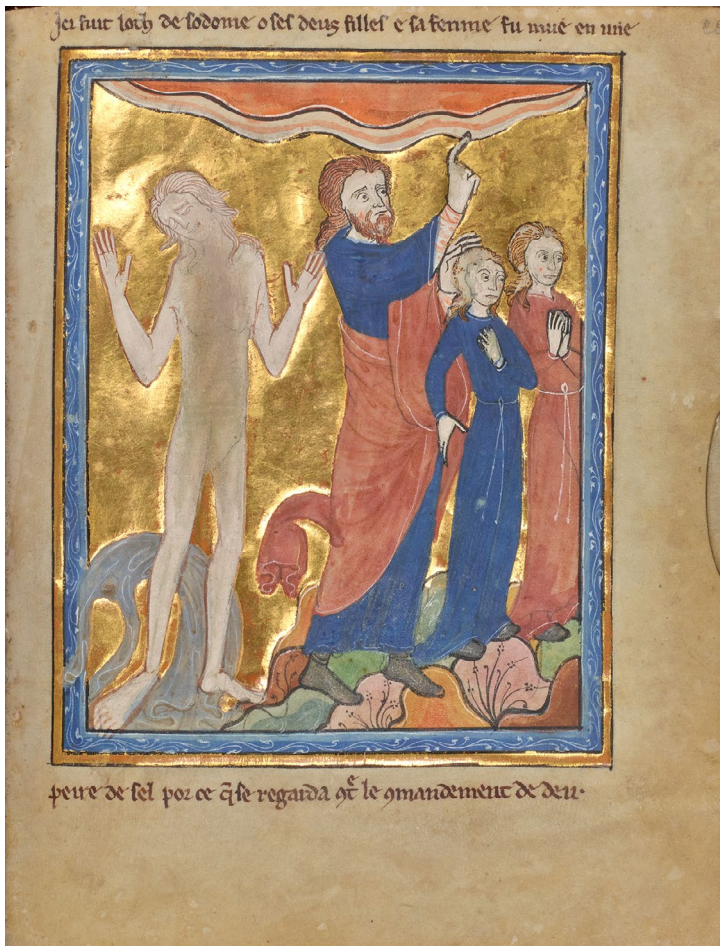 Ici fuit loth de sodome o ses deus filles e sa femme fu mue en une
peire de sel por ce q̃ se regarda 9tͤ le 9mandement de deu·